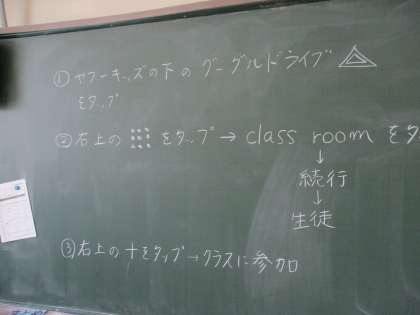 ① ヤフーキッズの下のグーグルドライブ
をタップ
② 右上の をタップ → class room をタ
↓
続行
↓
生徒
③ 右上の+をタップ→クラスに参加